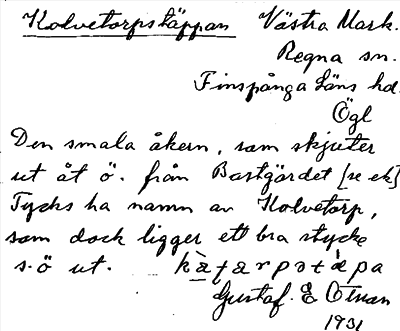 Kolvetorpstäppan Västra Mark.
Regna sn.
Finspånga läns hd.
Ögl
Den smala åkern, som skjuter
ut åt ö. från Bastgärdet [se ek]
Tycks ha namn av Kolvetorp,
som dock ligger ett bra stycke
s.ö ut.
Gustaf. E
1931